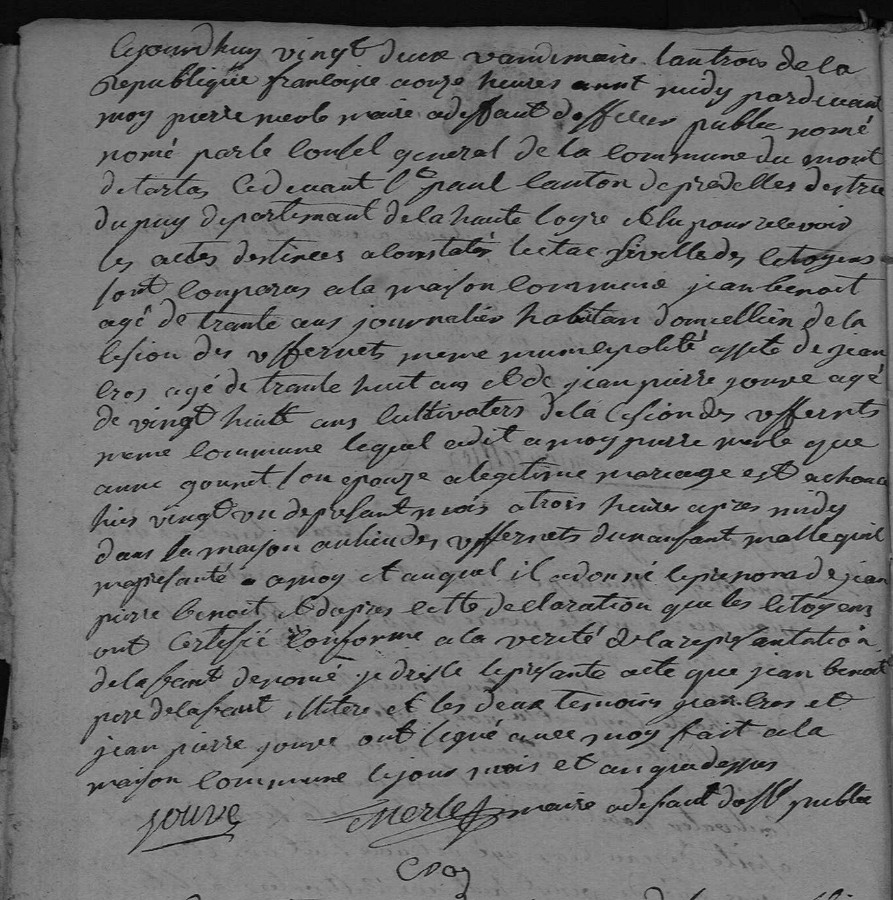 Cejourdhuy vingt deux vandemaire lan trois de la
Republiquée francoise a onze heures avant midy pardevant
moy pierre merle maire a deffaut dofficier publice nomé
nomé par le Consel general de la Commune du mont
de tartas Cedevant St paul Canton de pradelles destric
du puy departemant de la haute loyre elu pour recevoir
les actes destinees a Constatér letat siville des Citoyens
sont Conparus a la maison Commune jean benoit
agé de trante ans journaliér habitan domcellién de la
cesion des uffernets meme municypolité assité de jean
Cros agé de trante huit ans et de jean pierre jouve agé
de vingt huitt ans Cultivaters de la Cesion des uffernets
meme Commune lequel a dit a moy pierre merle que
anne gounet son epouze a legitime mariage est achoucé
hier vingt un de presant mois a trois heures apres midy
dans sa maison au lieu des uffernets dun anfant malle quil
ma presanté a moy et auquel il a donné le prenom de jean
pierre benoit et dapres cette declaration que les Citoyens
ont Certefié Conforme a la verité de la represantation
de lafsant denomé je dresse le presante acte que jean benoit
pere de lafsant illitéré et les deux temoins jean Cros et
jean pierre jouve ont signé avec moy fait a la
maison Commune le jour mois et an qui a dessus
jouve Merle maire a defaut doffr publice
Cros